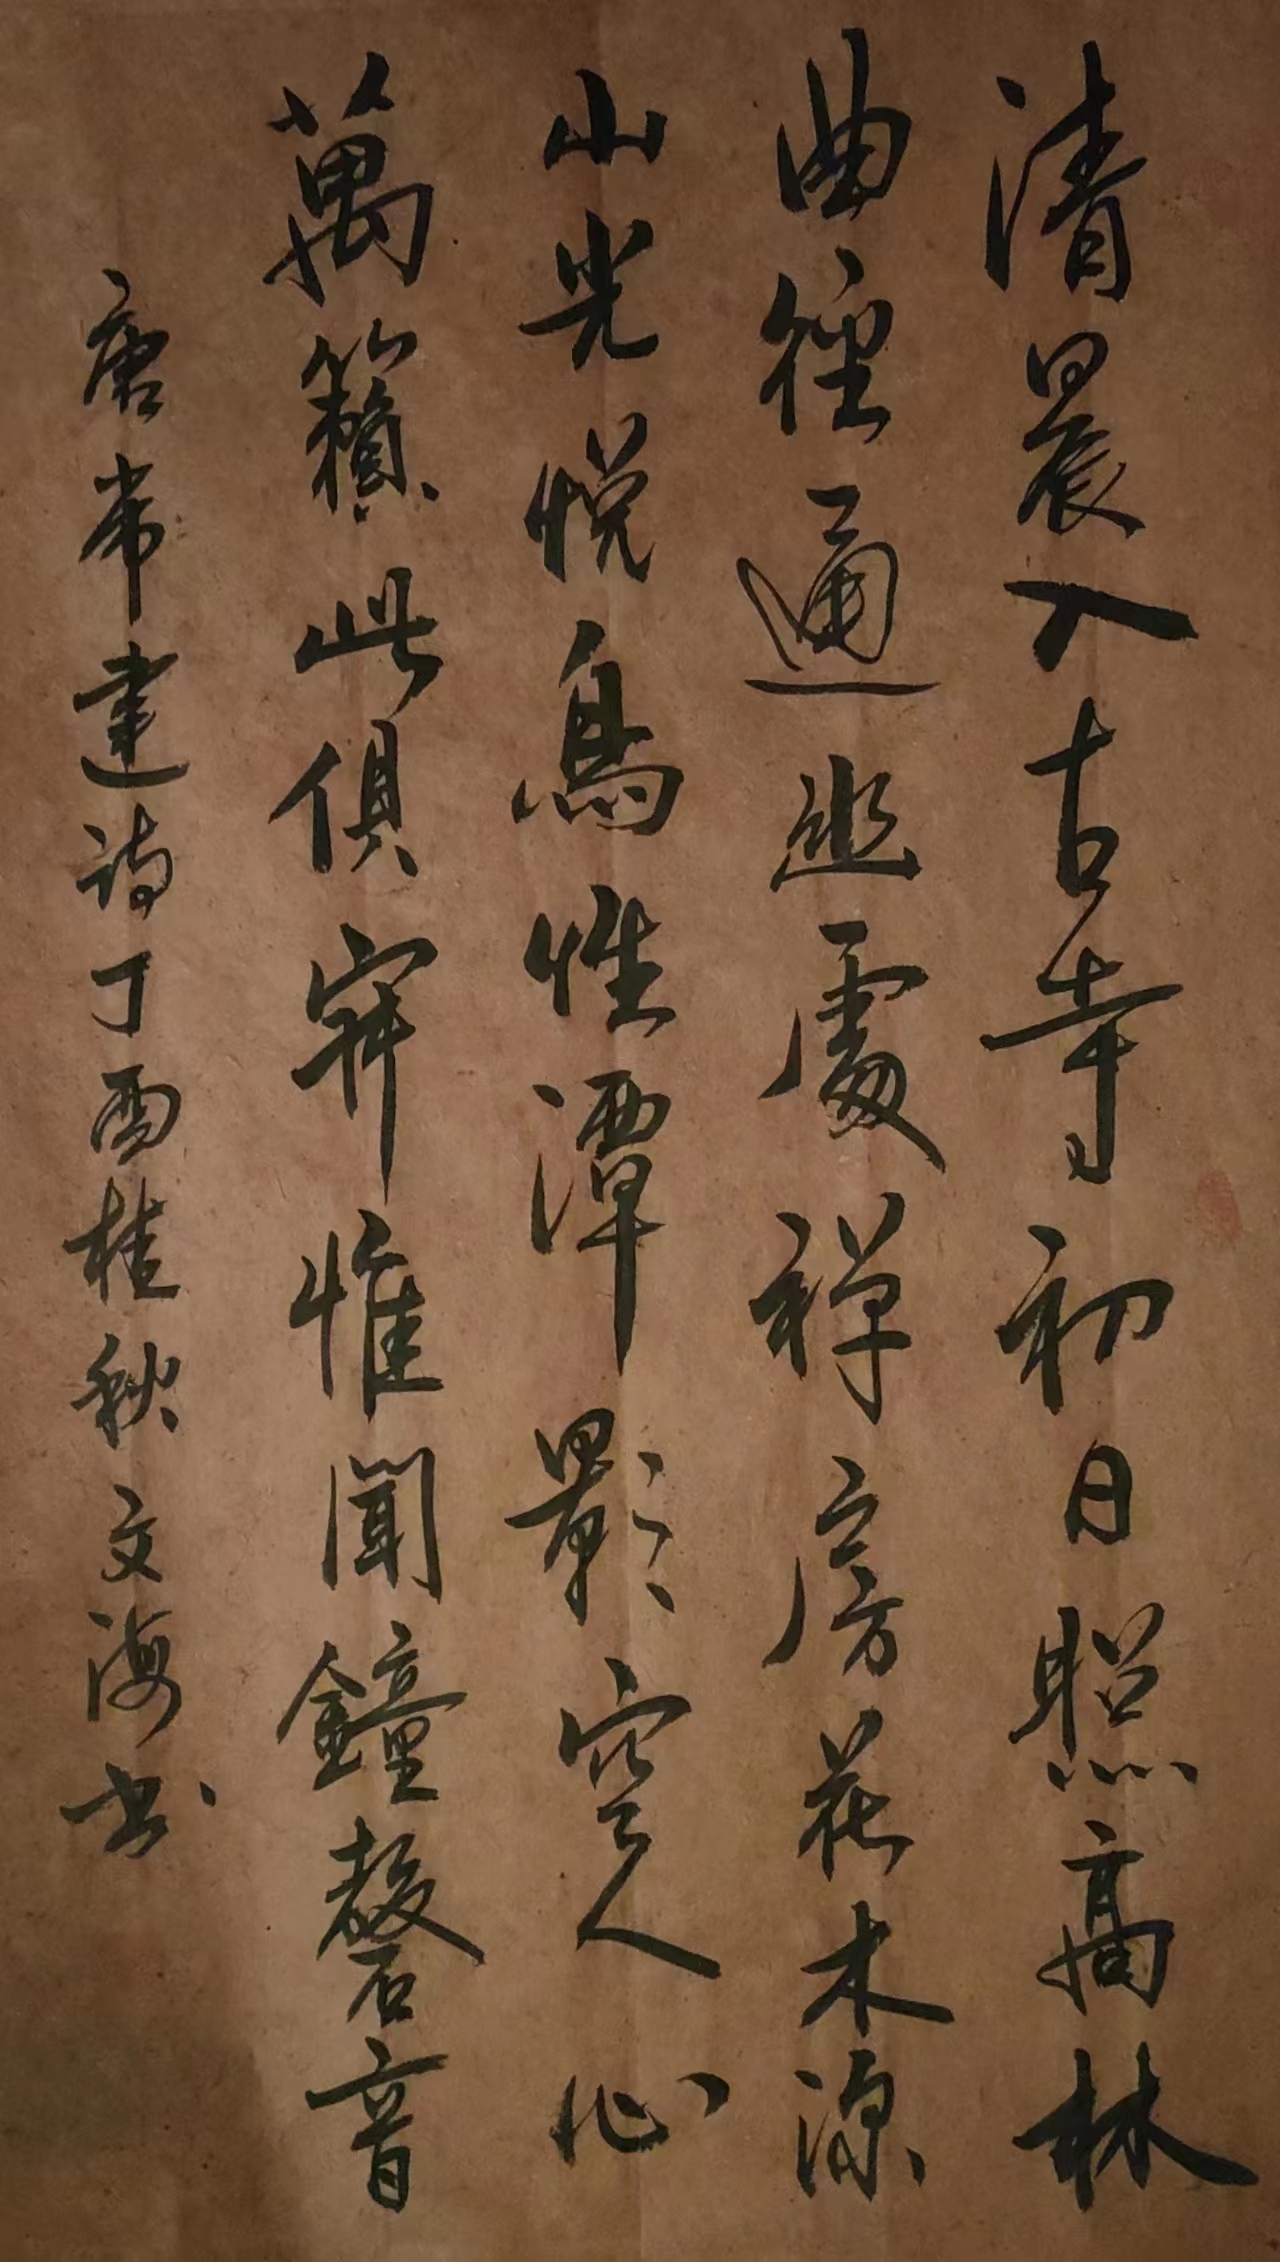 清晨入古寺初日照高林
曲徑通幽處禅房花木深
山光悦鳥性潭影空人心
萬籟此俱寂惟聞鐘磬音
唐常建诗丁酉桂秋文海书